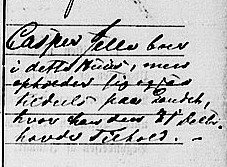 Casper Jelle boer
i dette Huus, men
opholder sig ogsaa
tildeels paa Landet,
hvor han den 31 Dec
havde Tilhold. -